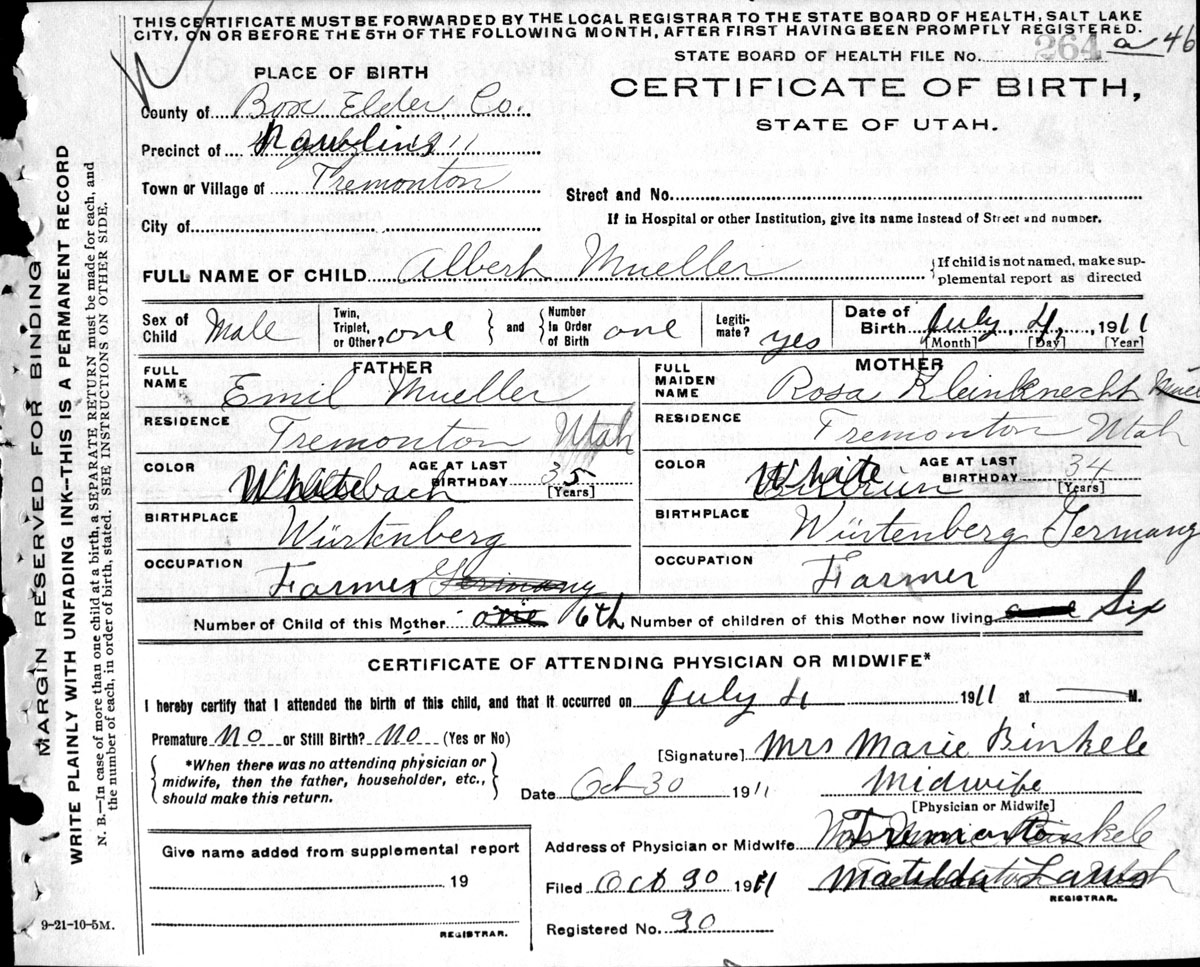 THIS CERTIFICATE MUST BE FORWARDED BY THE LOCAL REGISTRAR TO THE STATE BOARD OF HEALTH, SALT LAKE
CITY, ON OR BEFORE THE 5TH OF THE FOLLOWING MONTH, AFTER FIRST HAVING BEEN PROMPTLY REGISTERED.
STATE BOARD OF HEALTH FILE NO. 264 a 46
PLACE OF BIRTH
CERTIFICATE OF BIRTH,
STATE OF UTAH.
County of Box Elder Co.
Precinct of
Town or Village of Tremonton
Street and No.
City of
If in Hospital or other Institution, give its name instead of Street and number.
FULL NAME OF CHILD Albert Mueller {If child is not named, make sup-
plemental report as directed
Sex of Child Male Twin, Triplet, or Other? one } and { Number In Order of Birth one Legiti-mate? yes Date of Birth July, 4, 1911
[Month] [Day] [Year]
FATHER
FULL NAME Emil Mueller
RESIDENCE Tremonton Utah
COLOR White AGE AT LAST BIRTHDAY 35 [Years]
BIRTHPLACE Würtenberg
OCCUPATION Farmer Germany
MOTHER
FULL MAIDEN NAME Rosa Kleinknecht
RESIDENCE Tremonton Utah
COLOR White AGE AT LAST BIRTHDAY 34 [Years]
BIRTHPLACE Würtenberg Germany
OCCUPATION Farmer
Number of Child of this Mother one 6th Number of children of this Mother now living Six
CERTIFICATE OF ATTENDING PHYSICIAN OR MIDWIFE*
I hereby certify that I attended the birth of this child, and that it occurred on July 4 1911 at — M.
Premature No or Still Birth? No (Yes or No)
[Signature] Mrs Marie Binkele
{ *When there was no attending physician or
midwife, then the father, householder, etc.,
should make this return. }
Date Oct 30 1911
Midwife
[Physician or Midwife]
Address of Physician or Midwife
Give name added from supplemental report
19
REGISTRAR.
Filed Oct 30 1911
REGISTRAR.
Registered No. 30
9-21-10-5M.
MARGIN RESERVED FOR BINDING
WRITE PLAINLY WITH UNFADING INK--THIS IS A PERMANENT RECORD
N. B.—In case of more than one child at a birth, a SEPARATE RETURN must be made for each, and
the number of each, in order of birth, stated. SEE INSTRUCTIONS ON OTHER SIDE.